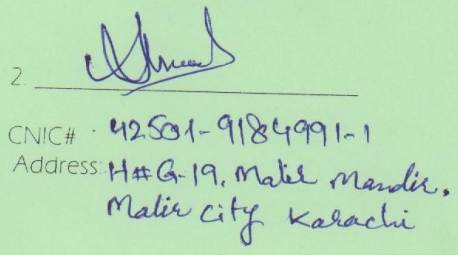 2.
CNIC# 42501-9184991-1
Address: H#G-19, Malir Mandir,
Malir City Karachi